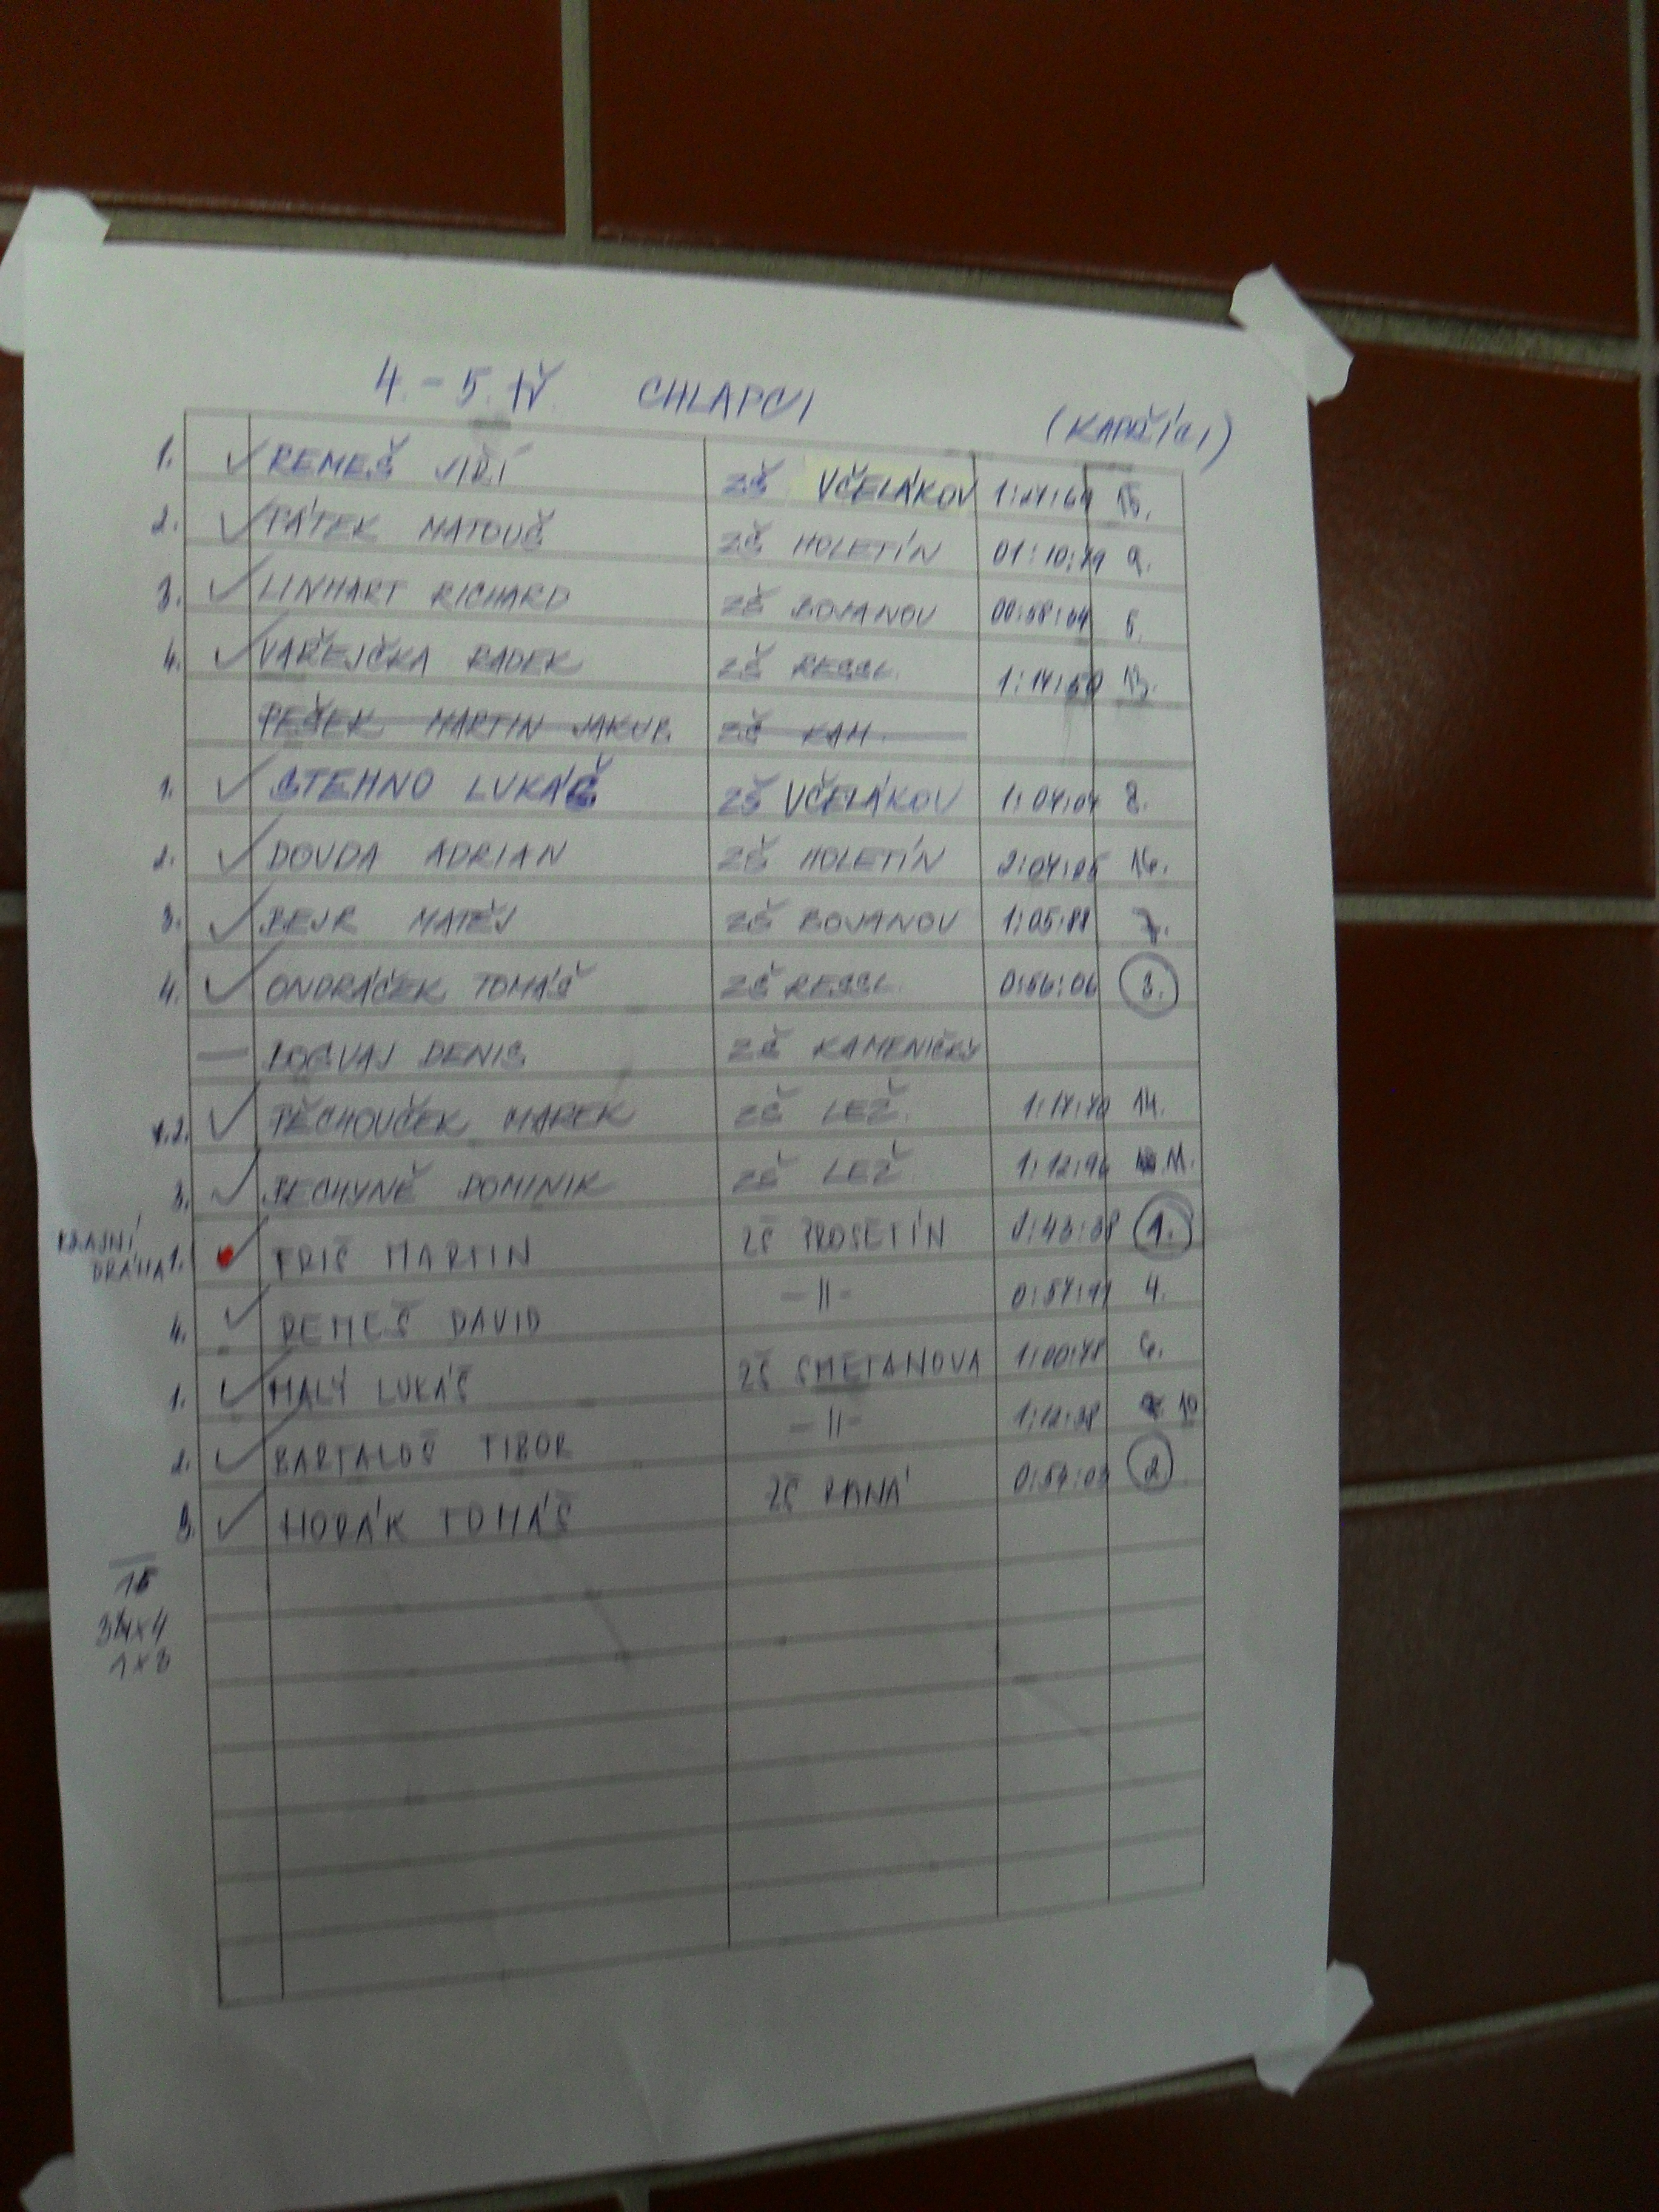 4. - 5. tř. CHLAPCI (KAPŘÍCI)
1. REMEŠ JIŘÍ ZŠ VČELÁKOV 15.
2. PÁTEK MATOUŠ ZŠ HOLETÍN 01:10:79 9.
3. LINHART RICHARD ZŠ BOJANOV 5.
4. VAŘEJČKA RADEK ZŠ RESSL. 1:14:50 13.
PEŠEK MARTIN JAKUB ZŠ KAM.
1. STEHNO LUKÁŠ ZŠ VČELÁKOV 1:07:07 8.
2. DOUDA ADRIAN ZŠ HOLETÍN 16.
3. BEJR MATĚJ ZŠ BOJANOV 1:05:88 7.
4. ONDRÁČEK TOMÁŠ ZŠ RESSL. 0:56:06 3.
— DENIS ZŠ KAMENIČKY
2. TĚCHOUČEK MAREK ZŠ LEŽ. 1:17:70 14.
3. BECHYNĚ DOMINIK ZŠ LEŽ. 1:12:96 11.
KRAJNÍ
DRÁHA 1. FRIŠ MARTIN ZŠ PROSETÍN 0:43:38 1.
4. REMEŠ DAVID -II- 0:57:91 4.
1. MALÝ LUKÁŠ ZŠ SMETANOVA 1:00:78 6.
2. BARTALOŠ TIBOR -II- 1:12:38 10
3. HORÁK TOMÁŠ ZŠ RANÁ 0:54:03 2.
15
3x4
1x3